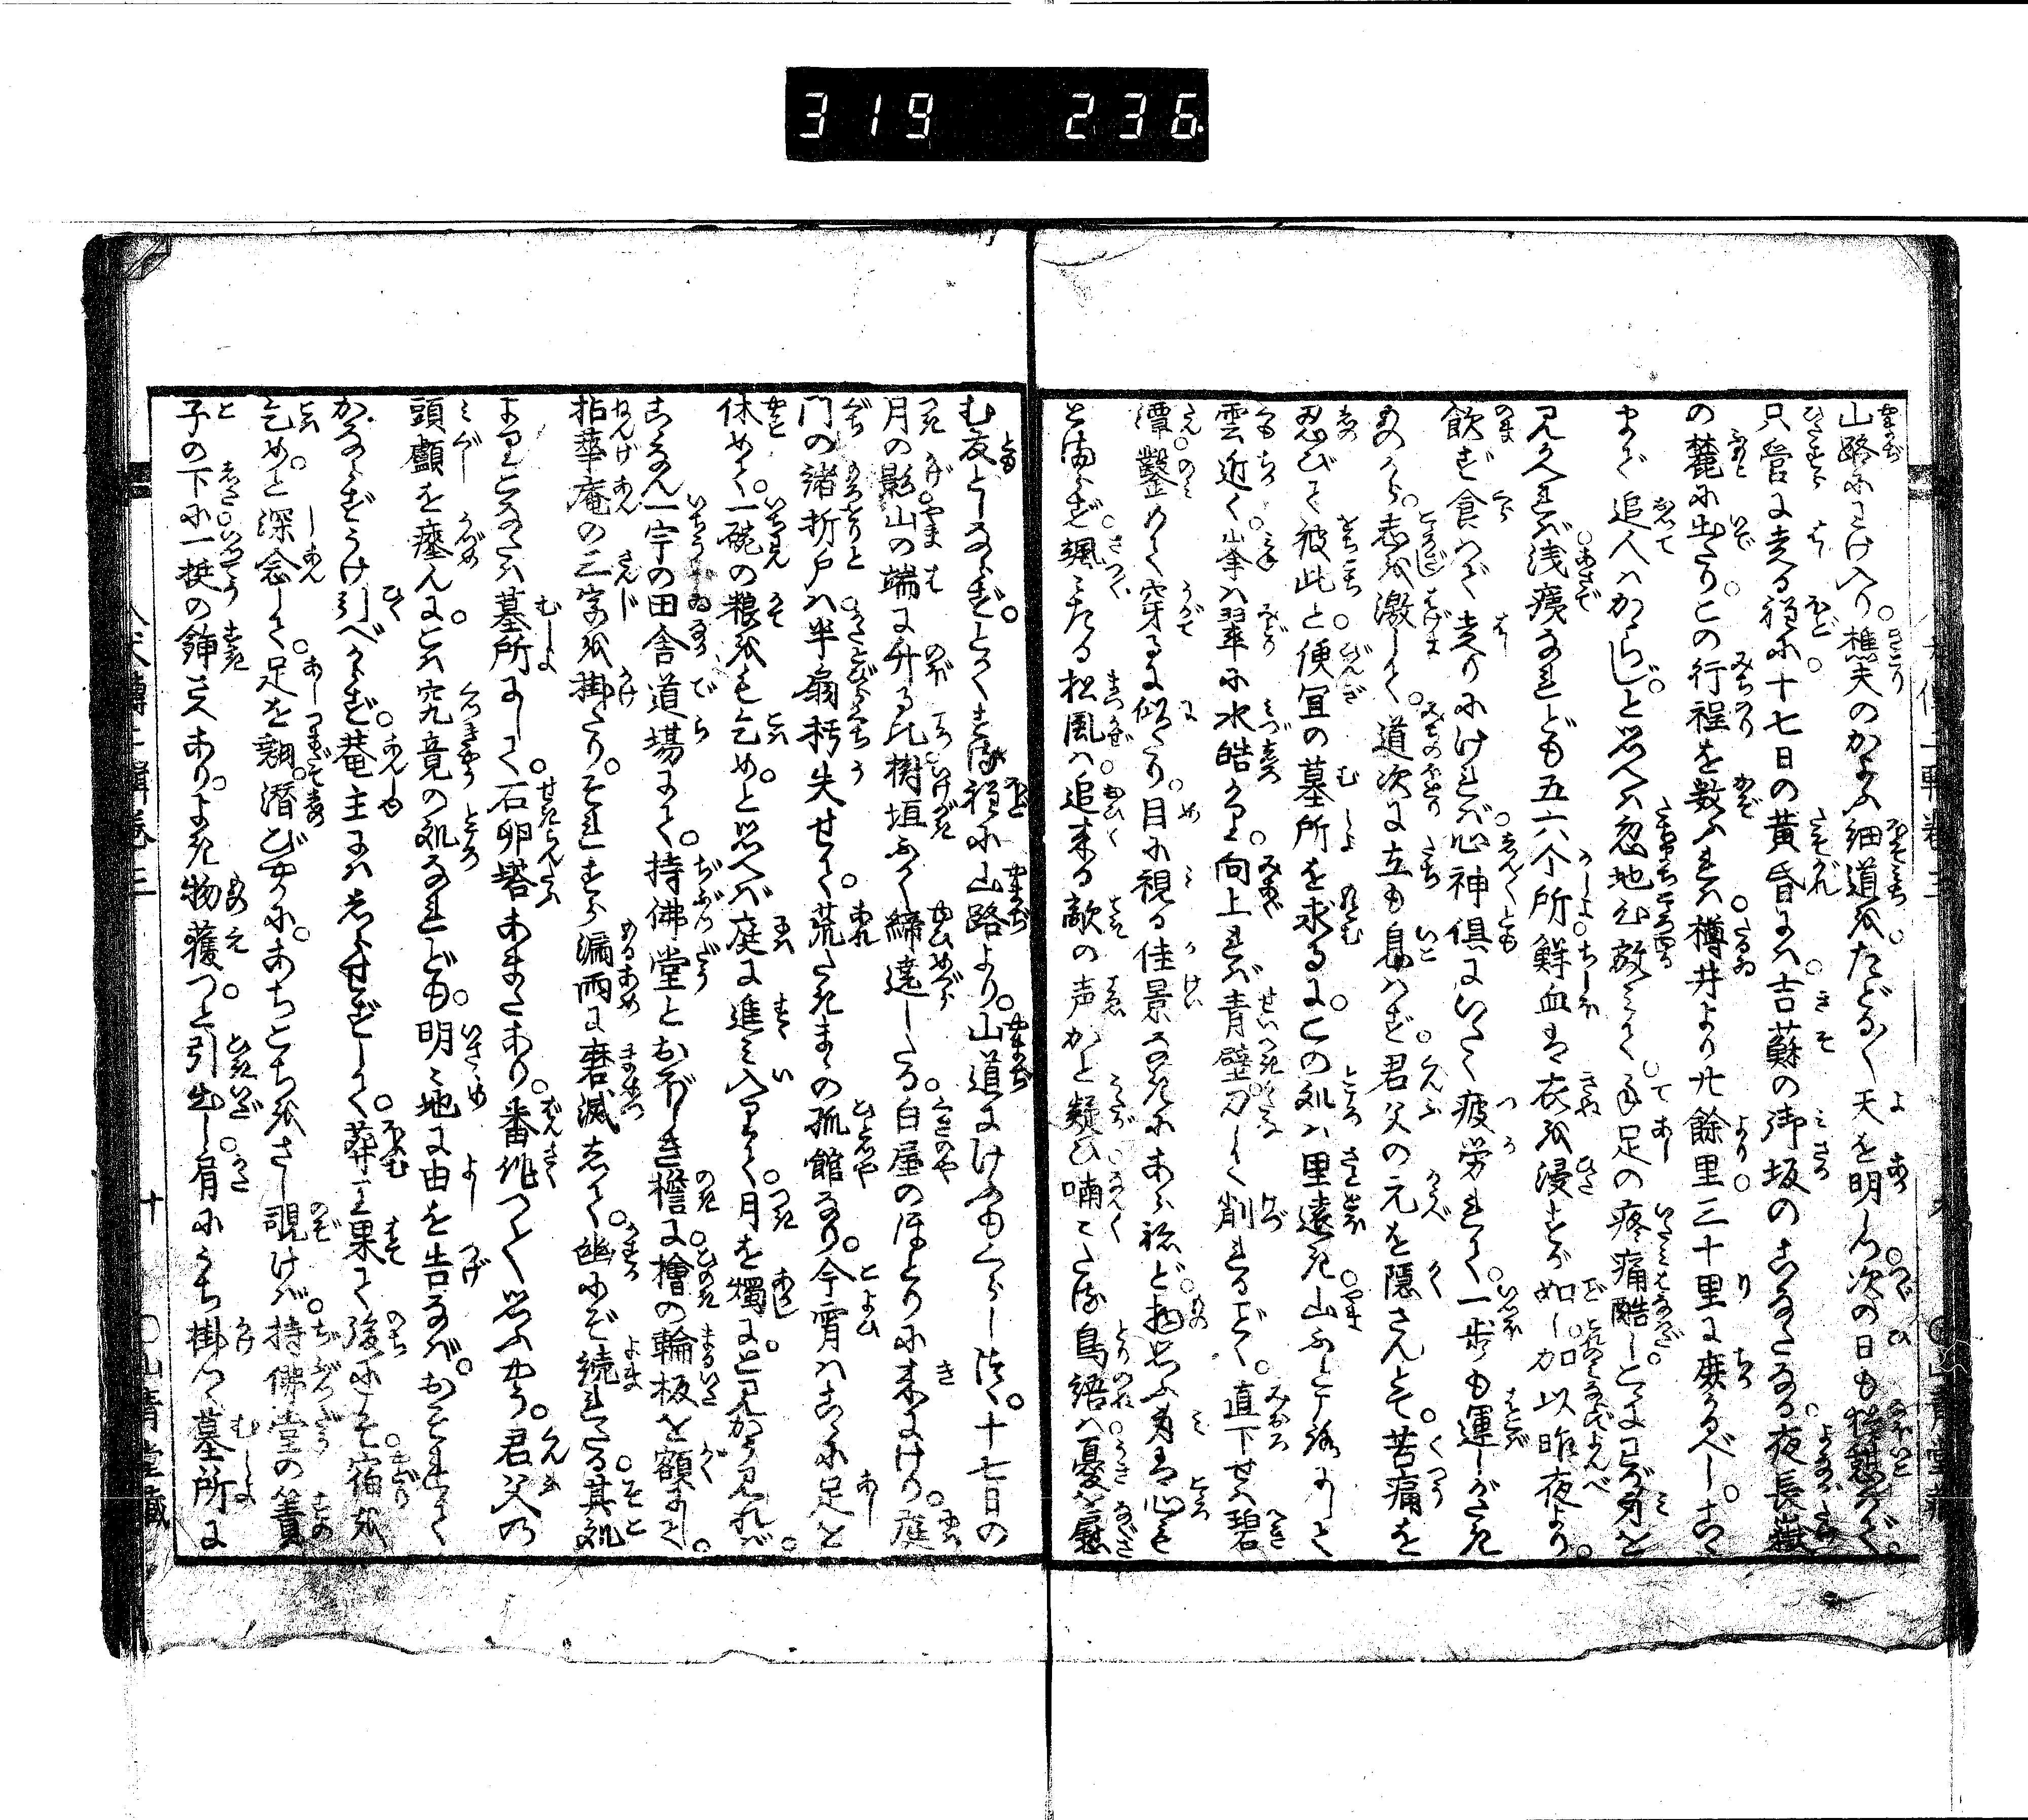 319 236
山路にわけ入り。樵夫のかよふ細道を。たどる〱天を明しつ。次の日も猶憩はで。
只管に走る程に。十七日の黄昏には。吉蘇の御坂のこなたなる。夜長嶽
の麓に出たり。この行程を数ふれば。樽井より廿餘里。三十里に庶かるべし。こゝ
まで追人はかゝらじ。と思へば忽地心放みて。手足の疼痛酷し。とわが身を
見かへれば。浅痍なれども五六个所。鮮血は衣を浸すが如し。加以昨夜より。
飲ず食はで走りにければ。心神倶にいたく疲労れて。一歩も運しがたき
ものから。志を激して。道次に立も息はず。君父の元を隠さんとて。苦痛を
忍びて彼此と。便宜の墓所を求るに。この処は里遠き。山ふところにして
雲近く。峯は翠に水皓たり。向上れば青壁刀して削れるごとく。直下せば碧
潭。鑿めて穿るに似たり。目に視る佳景なきにあらねど。物思ふ身は心も
とまらず。颯々たる松風は。追来る敵の声かと疑ひ。喃々たる鳥語は。憂を慰
む友としならず。とかくする程に山路より。山道にけふもくらしつ。十七日の
月の影。山の端に升る比。樹垣ふかく締遶したる。白屋のほとりに来にけり。庭
門の諸折戸は。半扇朽失せて。荒たきまゝの孤館なり。今宵はこゝに足を
休めて。一碗の粮をも乞め。と思へば庭に進み入りて。月を燭に。と見かう見れば。
こもなん一宇の田舎道場にて。持佛堂とおぼしき檐に。檜の輪板を額にして。
拈華庵の三字を掛たり。それすら漏雨に磨滅して。幽にぞ続れたる。其処
よりこなたは墓所にして。石卵塔あまたあり。番作つく〱思ふやう。君父の
頭顱を瘞んに。こは究竟の処なれども。明々地に由を告なば。おそれて
かならずうけ引べからず。菴主には知らせずして。葬り果て後にこそ宿を
乞め。と深念して。足を翹。潜び寄に。あちこちをさし覗けば。持佛堂の簀
子の下に一挺の鋤さへあり。よき物獲つ。と引出し。肩にうち掛つゝ墓所に
十